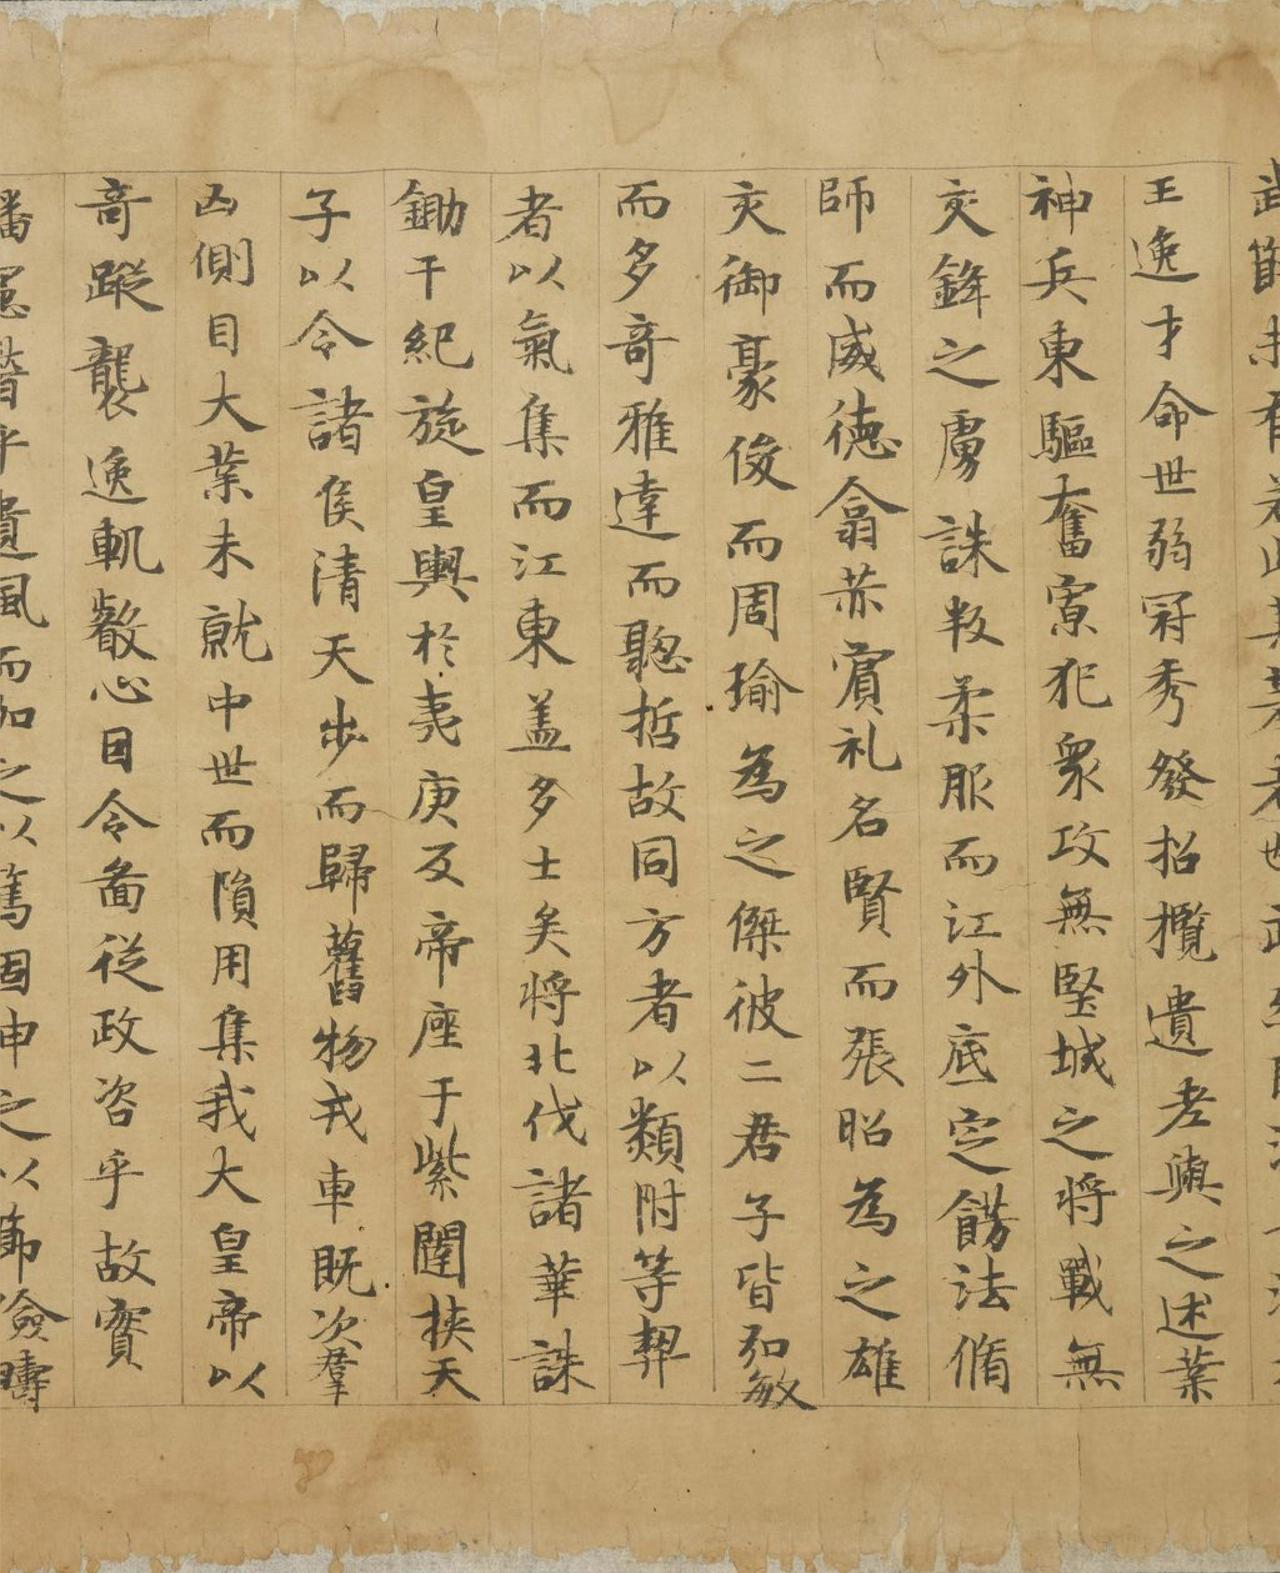 武節未有若此其著者也武烈既沒長沙桓
王逸才命世弱冠秀發招攬遺老與之述業
神兵東驅奮寡犯衆攻無堅城之將戰無
交鋒之虜誅叛柔服而江外底定餝法脩
師而威德翕赫賓礼名賢而張昭為之雄
交御豪俊而周瑜為之傑彼二君子皆弘敏
而多奇雅達而聰哲故同方者以類附等契
者以氣集而江東盖多士矣將北伐諸華誅
鋤干紀旋皇輿於夷庚反帝座于紫闥挾天
子以令諸侯清天步而歸舊物戎車既次羣
凶側目大業未就中世而隕用集我大皇帝以
奇蹤襲逸軌叡心因令啚從政咨乎故實
播憲稽乎遺風而加之以篤固申之以節儉疇